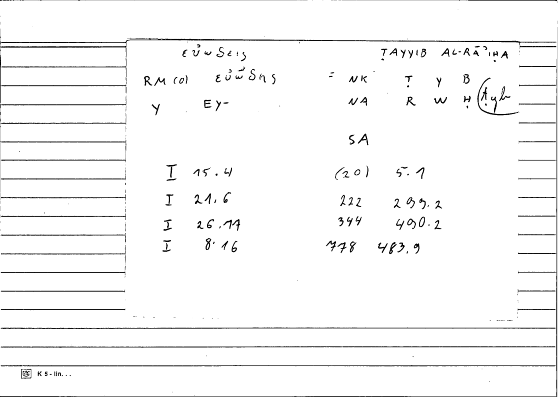 εὐώδεις ṬAYYIB AL-RĀʾIḤA
RM (0) εὐώδης = NK Ṭ Y B
Y EY- NA R W Ḥ Ayb
SA
I 15.4 (20) 5.1
I 21.6 222 299.2
I 26.11 344 490.2
I 8.16 778 483.9
K 5 - lin...